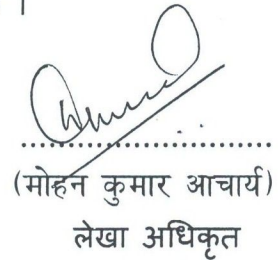 (मोहन कुमार आचार्य)
लेखा अधिकृत